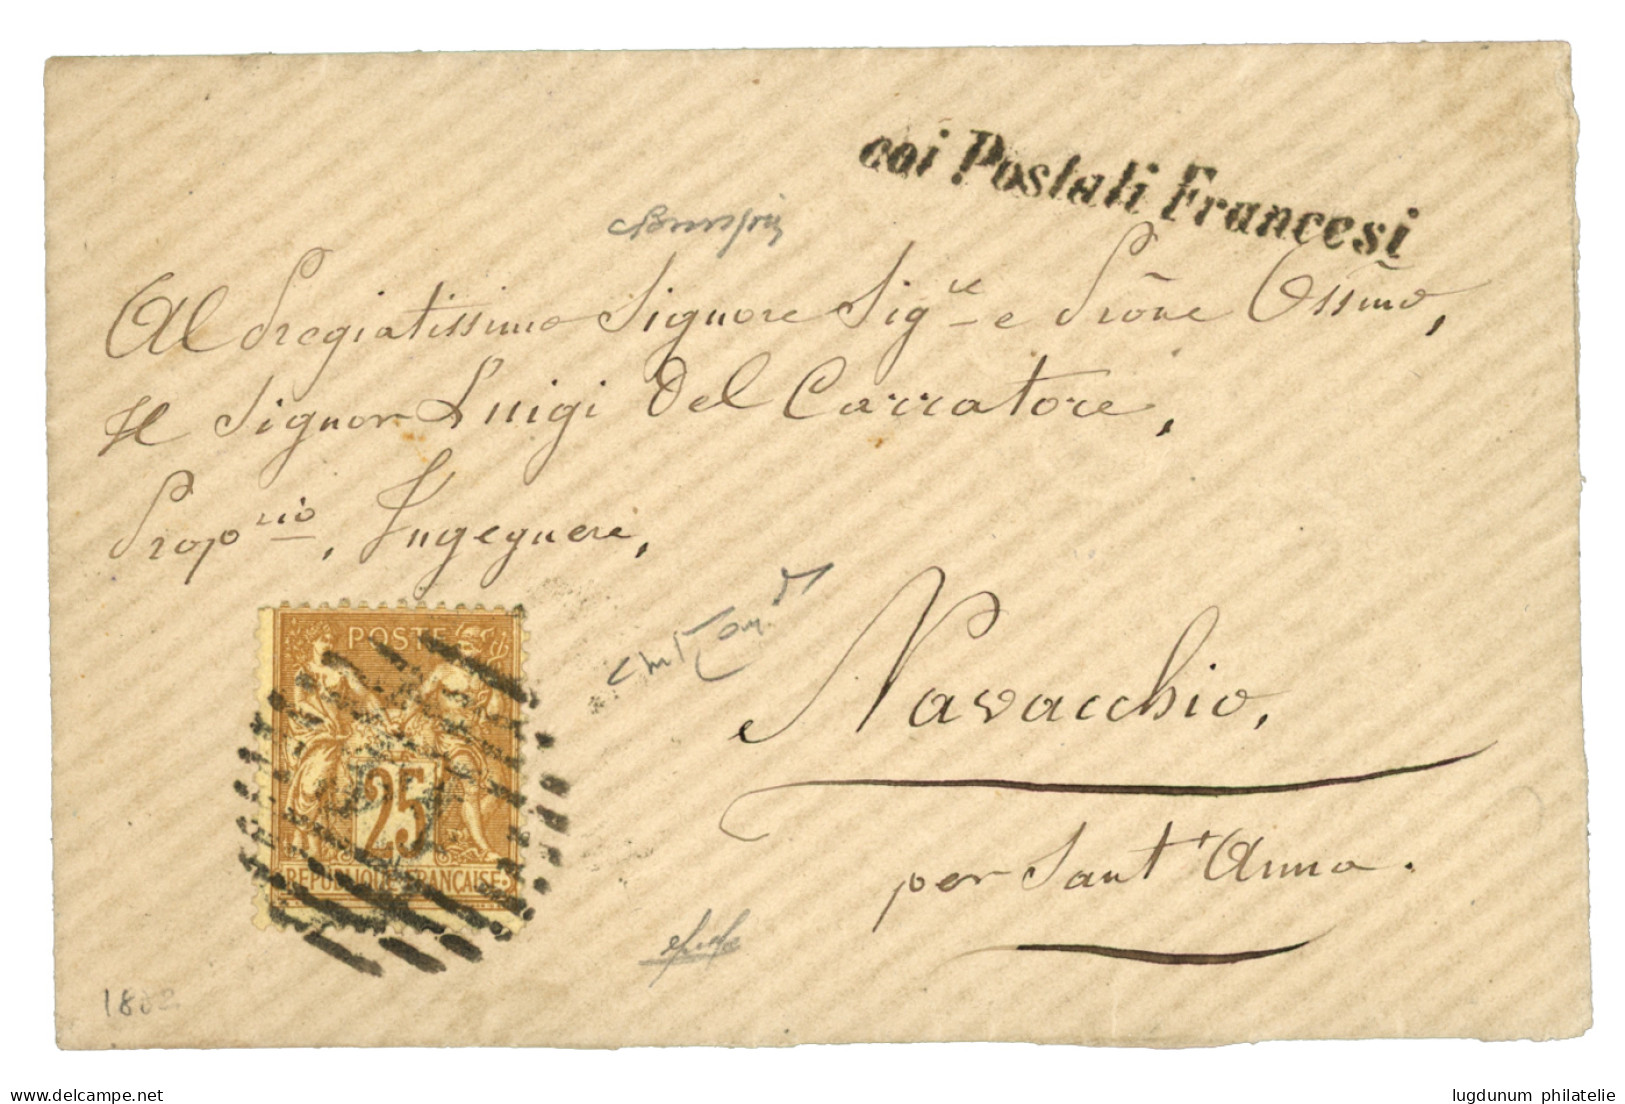 coi Postali Francesi
Al Pregiatissimo Signore Sig.re e Prone Ossmo,
Il Signor Luigi Del Carratore,
Prop.rio, Ingegnere,
POSTE
25
REPUBLIQUE FRANÇAISE
Navacchio,
per Sant'Anna.
1882
www.delcampe.net
lugdunum philatelie